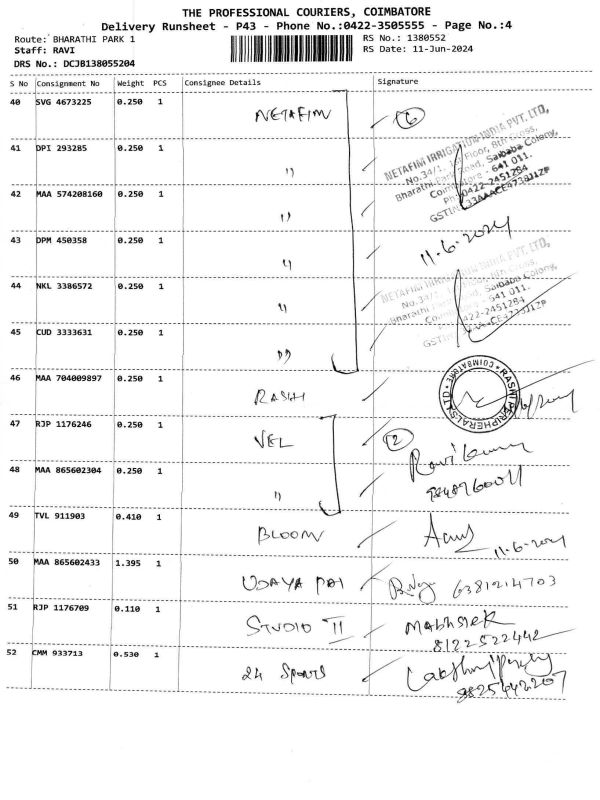 THE PROFESSIONAL COURIERS, COIMBATORE
Delivery Runsheet - P43 - Phone No.:0422-3505555 - Page No.:4
Route: BHARATHI PARK 1
RS No.: 1380552
Staff: RAVI
RS Date: 11-Jun-2024
DRS No.: DCJB138055204
S No Consignment No Weight PCS Consignee Details Signature
40 SVG 4673225 0.250 1 NETAFIM 6
NETAFIM IRRIGATION INDIA PVT. LTD,
No.34/1, 1st Floor, 8th Cross,
Bharathi Park Road, Saibaba Colony,
Coimbatore - 641 011.
Ph:0422-2451284
41 DPI 293285 0.250 1 "
42 MAA 574208160 0.250 1 "
43 DPM 450358 0.250 1 " 11.6.2024
NETAFIM IRRIGATION INDIA PVT. LTD,
No.34/1, 1st Floor, 8th Cross,
Bharathi Park Road, Saibaba Colony,
Coimbatore - 641 011.
Ph:0422-2451284
44 NKL 3386572 0.250 1 "
45 CUD 3333631 0.250 1 "
46 MAA 704009897 0.250 1 RASHI
RASHI PERIPHERALS LTD * COIMBATORE *
47 RJP 1176246 0.250 1 VEL 2
48 MAA 865602304 0.250 1 "
49 TVL 911903 0.410 1 BLOOM 11-6-2024
50 MAA 865602433 1.395 1 UDAYA PAI 6381214703
51 RJP 1176709 0.110 1 STUDIO II
8122522442
52 CMM 933713 0.530 1 24 Sports
9825642207